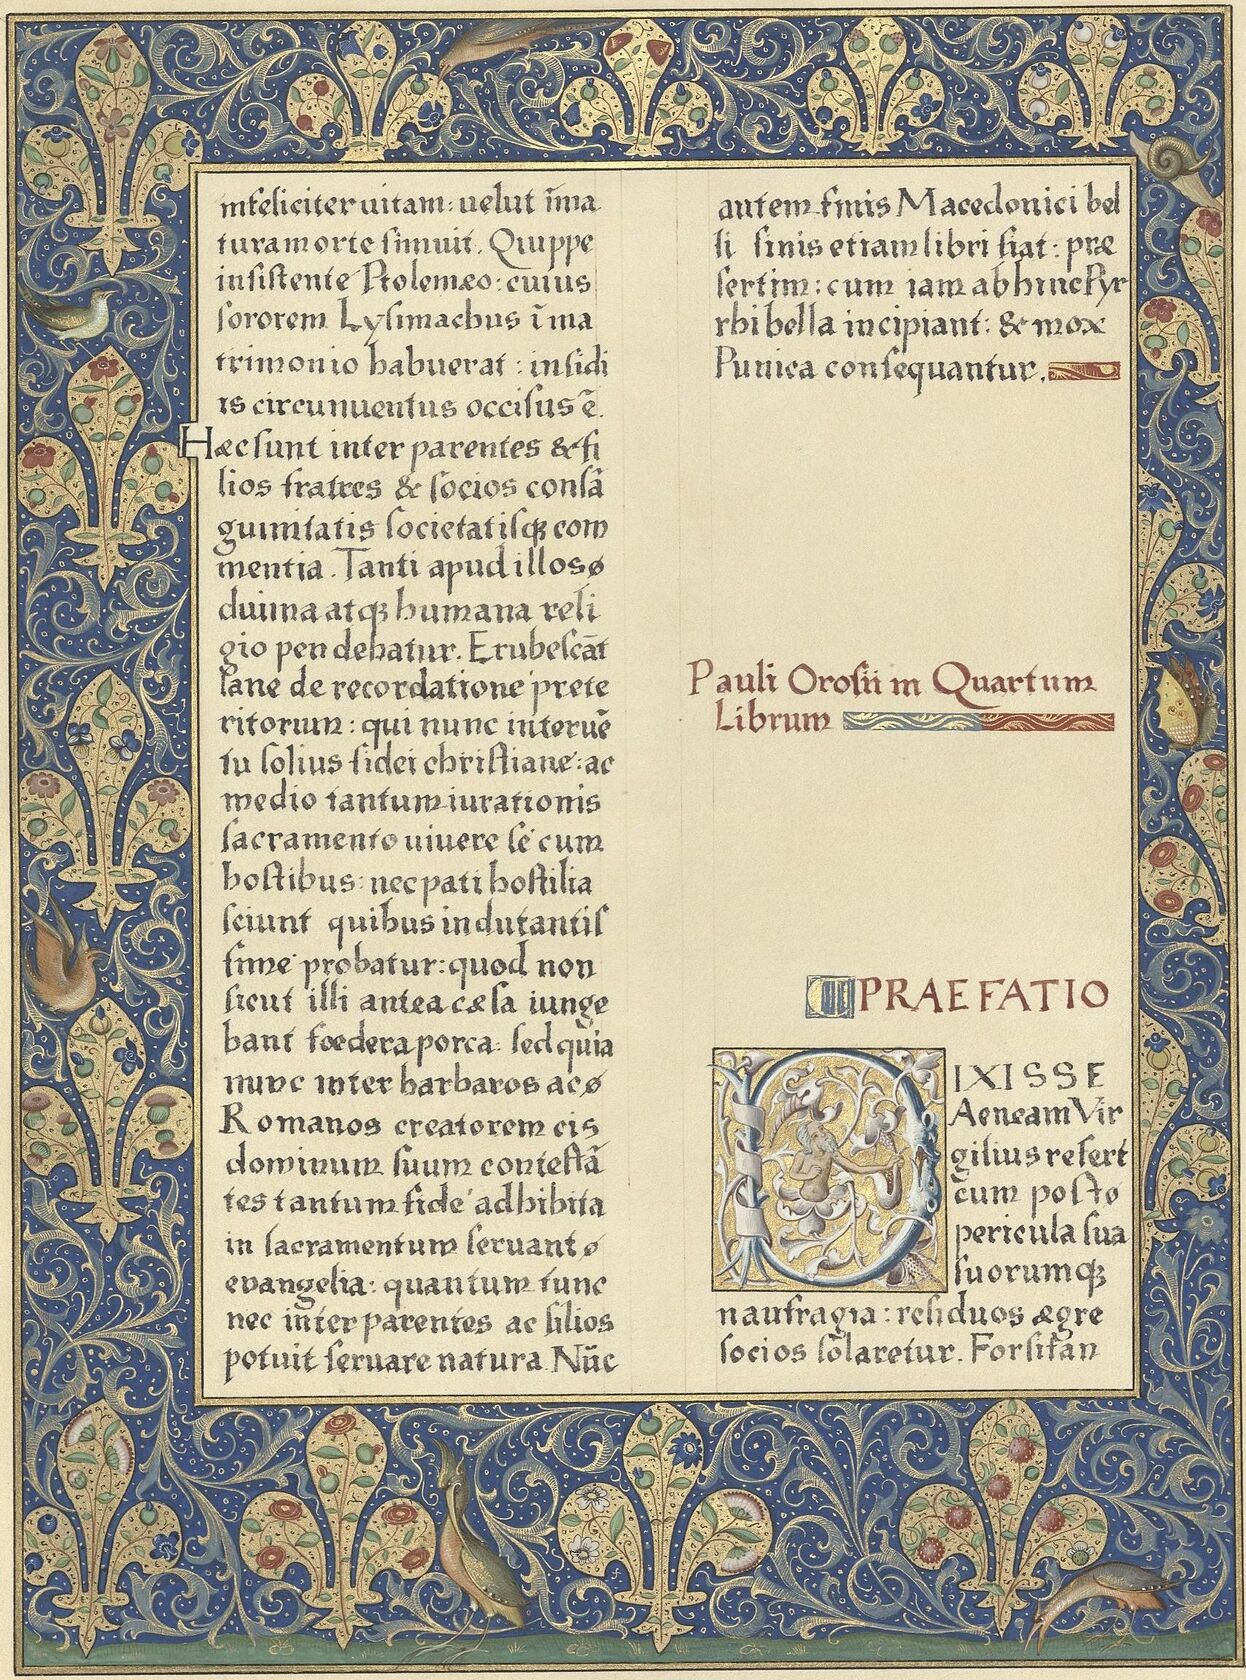 infeliciter uitam: uelut īma
tura morte finiuit. Quippe
insistente Ptolemæo: cuius
sororem Lysimachus ī ma
trimonio habuerat: insidi
is circunuentus occisus ē.
Hæc sunt inter parentes & fi
lios fratres & socios consā
guinitatis societatisqꝫ com
mentia. Tanti apud illos ø
diuina atqꝫ humana reli
gio pendebatur. Erubescāt
sane de recordatione prete
ritorum: qui nunc interuē
tu solius fidei christiane: ac
medio tantum iurationis
sacramento uiuere se cum
hostibus: nec pati hostilia
sciunt quibus indutantis
sime probatur: quod non
sicut illi antea cæsa iunge
bant foedera porca: sed quia
nunc inter barbaros ac ø
Romanos creatorem eis
dominum suum contestā
tes tantum fide adhibita
in sacramentum seruant ø
euangelia: quantum tunc
nec inter parentes ac filios
potuit seruare natura. Nūc
autem finis Macedonici bel
li finis etiam libri fiat: præ
sertim: cum iam abhinc Pyr
rhi bella incipiant: & mox
Punica consequantur.
Pauli Orosii in Quartum
Librum
PRAEFATIO
DIXISSE
Aeneam Vir
gilius refert
cum post ø
pericula sua
suorumqꝫ
naufragia: residuos ægre
socios solaretur. Forsitan